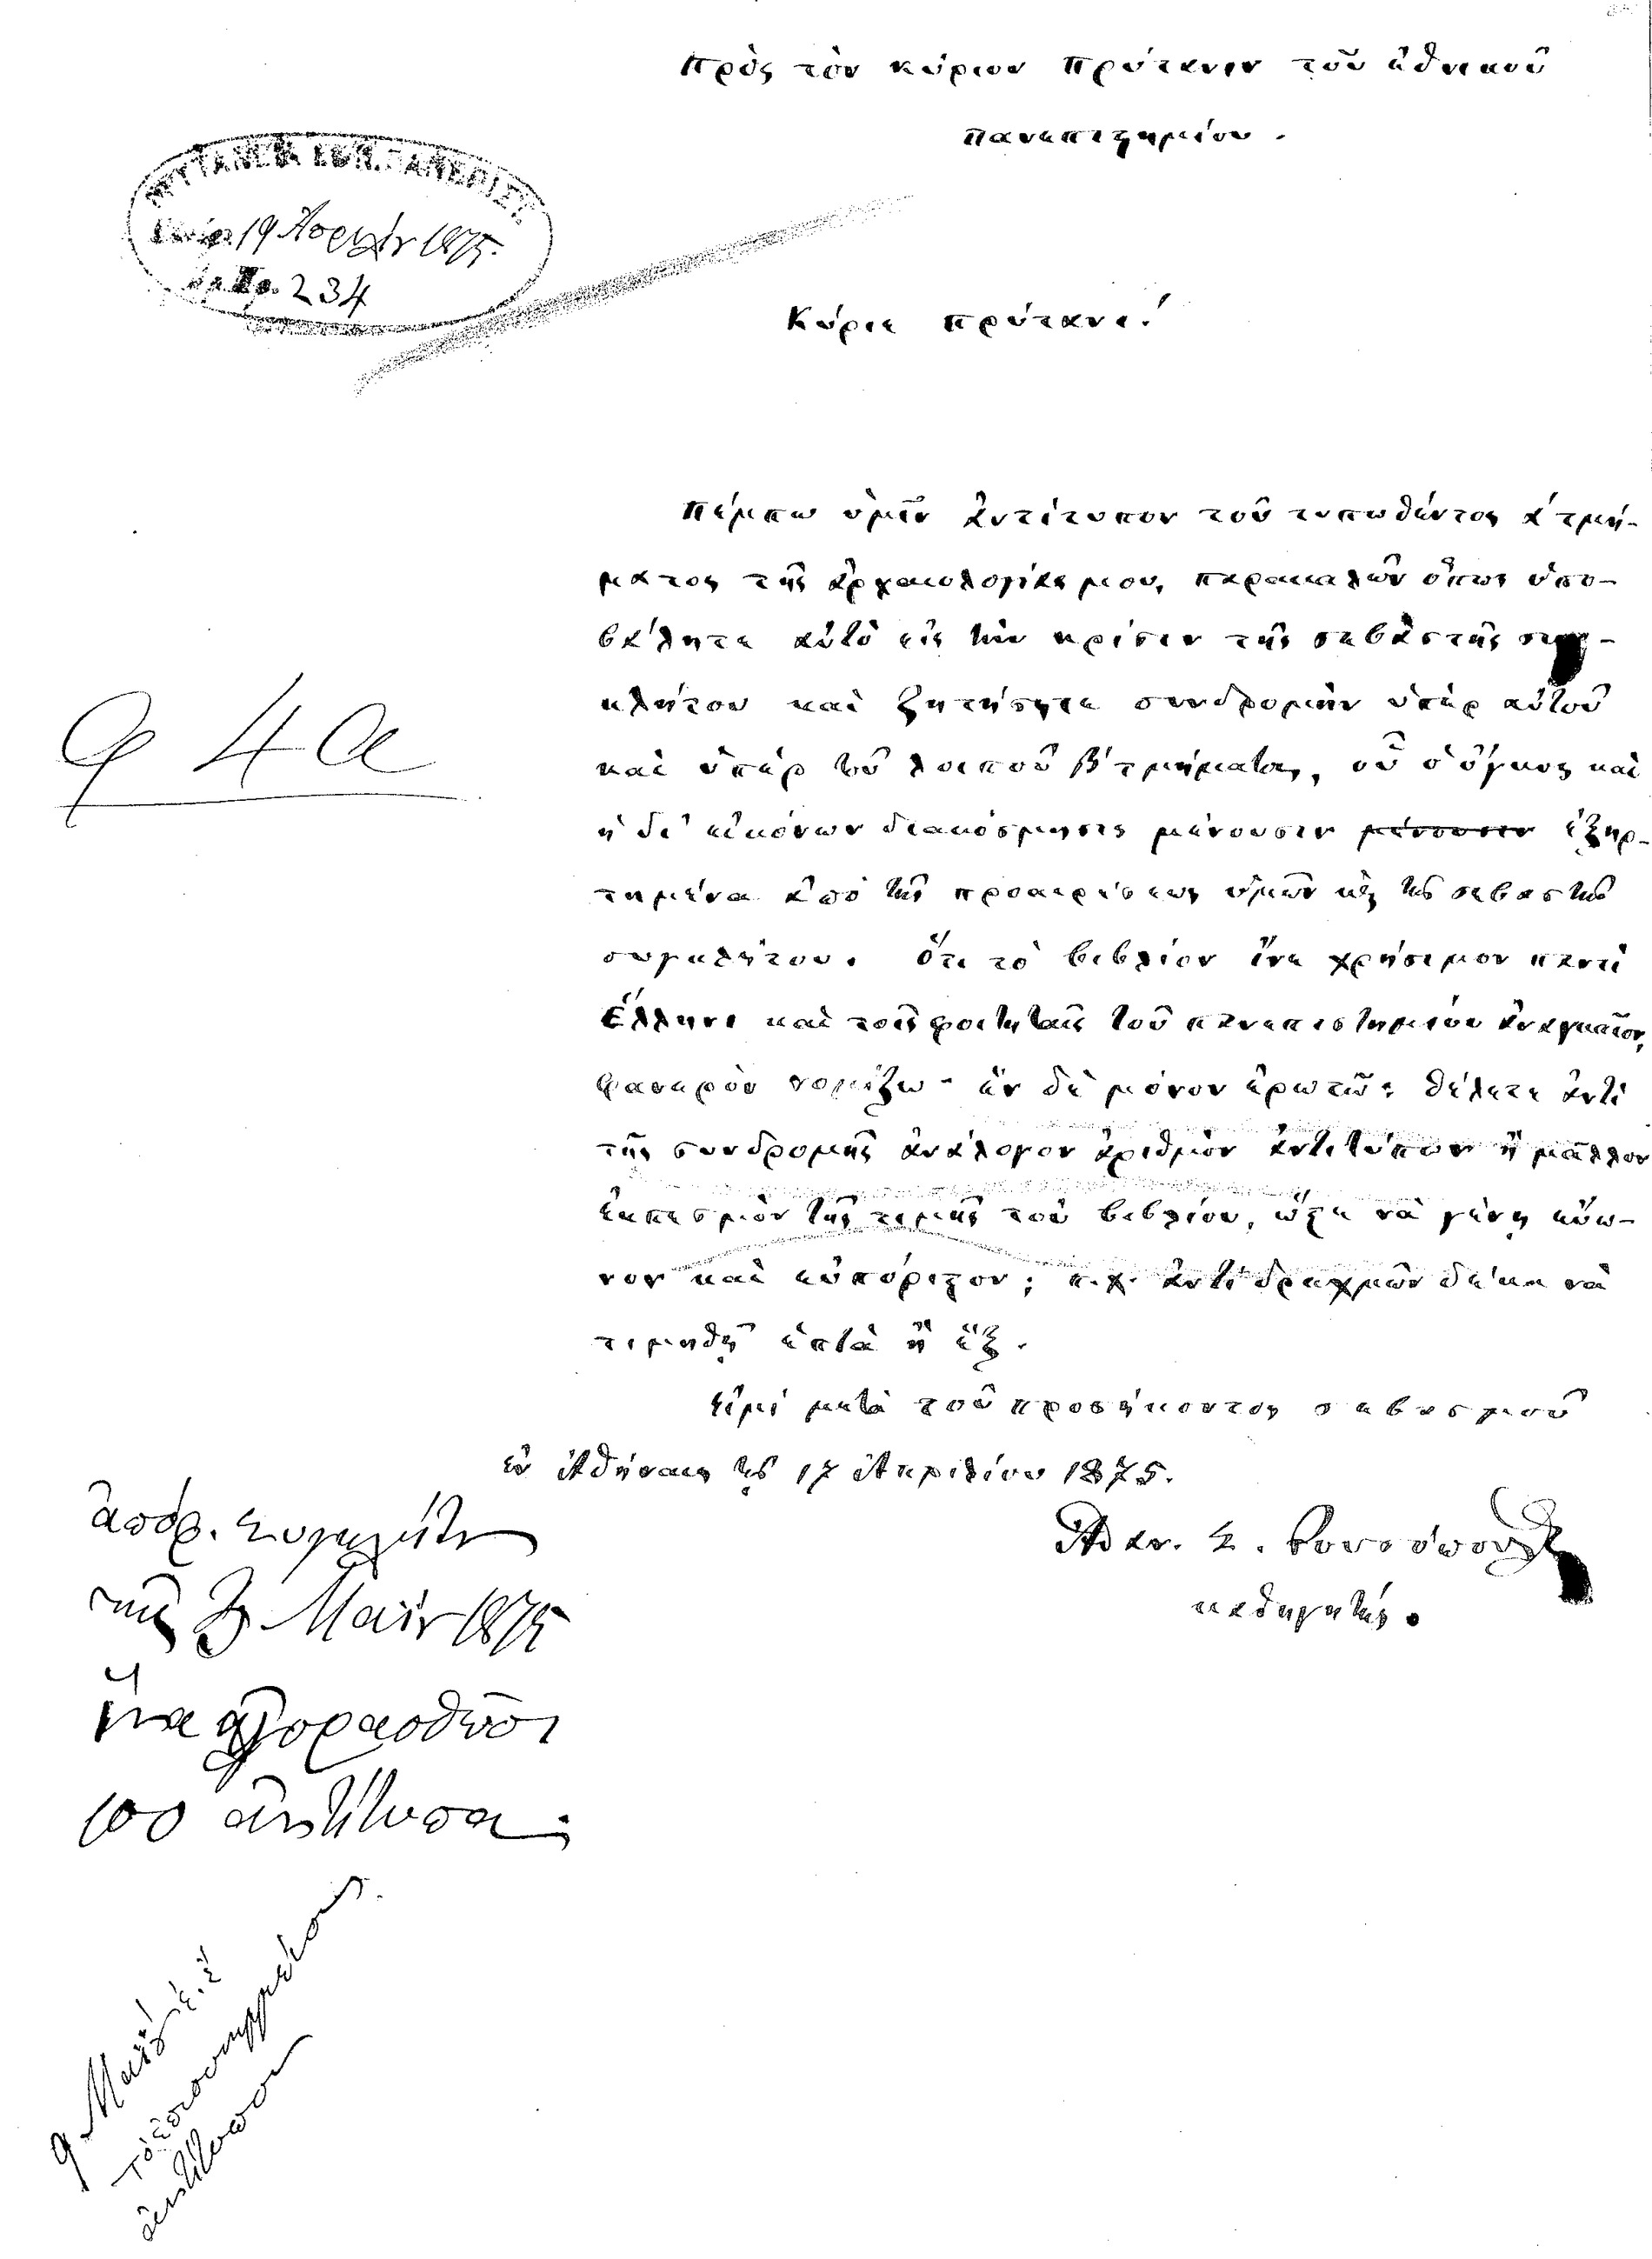 Πρὸς τὸν κύριον Πρύτανιν τοῦ ἐθνικοῦ
Πανεπιστημίου.
ΠΡΥΤΑΝΕΙΑ ΕΘΝ. ΠΑΝΕΠΙΣΤ.
19 Ἀπριλίου 1875.
Ἀρ. Πρ. 234
Κύριε πρύτανι!
Πέμπω ὑμῖν ἀντίτυπον τοῦ τυπωθέντος α΄ τμή-
ματος τῆς ἀρχαιολογίας μου, παρακαλῶν ὅπως ὑπο-
βάλητε αὐτὸ εἰς τὴν κρίσιν τῆς σεβαστῆς συγ-
κλήτου καὶ ζητήσητε συνδρομὴν ὑπὲρ αὐτοῦ
καὶ ὑπὲρ τοῦ λοιποῦ β΄ τμήματος, οὗ ὁ ὄγκος καὶ
ἡ δι' εἰκόνων διακόσμησις μένουσιν μένουσιν ἐξηρ-
τημένα ἀπὸ τῆς προαιρέσεως ὑμῶν κ τῆς σεβαστῆς
συγκλήτου. Ὅτι τὸ βιβλίον εἶνε χρήσιμον παντὶ
Ἕλληνι καὶ τοῖς φοιτηταῖς τοῦ πανεπιστημίου ἀναγκαῖον,
φανερὸν νομίζω - ἓν δὲ μόνον ἐρωτῶ: θέλετε ἀντὶ
τῆς συνδρομῆς ἀνάλογον ἀριθμὸν ἀντιτύπων ἢ μᾶλλον
ἐκπεσμὸν τῆς τιμῆς τοῦ βιβλίου, ὥστε νὰ γένῃ εὔω-
νον καὶ εὐπόριστον; π.χ. ἀντὶ δραχμῶν δέκα νὰ
τιμηθῇ ἑπτὰ ἢ ἕξ.
Εἰμὶ μετὰ τοῦ προσήκοντος σεβασμοῦ
ἐν Ἀθήναις τῇ 17 Ἀπριλίου 1875.
Ἀθαν. Σ. Ῥουσόπουλος
καθηγητής.
φ 4α
ἀπόφ. Συγκλήτου
τῆς 3 Μαΐου 1875
ἵνα ἀγορασθῶσι
100 ἀντίτυπα.
9 Μαΐου ἐ. ἔ.
ἀντίτυπον